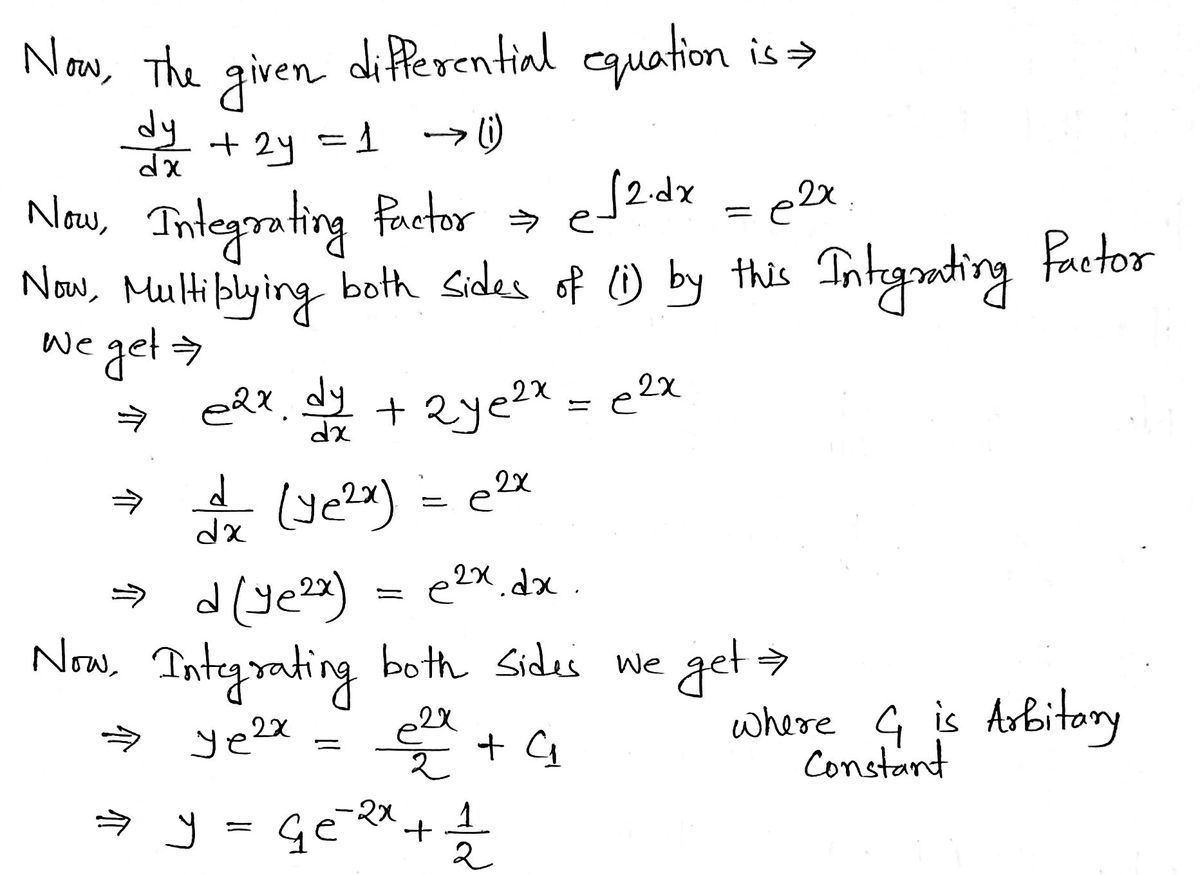 Now, The given differential equation is ⇒
dy/dx + 2y = 1 → (i)
Now, Integrating factor ⇒ e^∫2.dx = e^2x.
Now, Multiplying both sides of (i) by this Integrating factor
we get ⇒
⇒ e^2x. dy/dx + 2ye^2x = e^2x
⇒ d/dx (ye^2x) = e^2x
⇒ d(ye^2x) = e^2x.dx.
Now, Integrating both sides we get ⇒
⇒ ye^2x = e^2x/2 + C₁ where C₁ is Arbitary
Constant
⇒ y = C₁e^-2x + 1/2